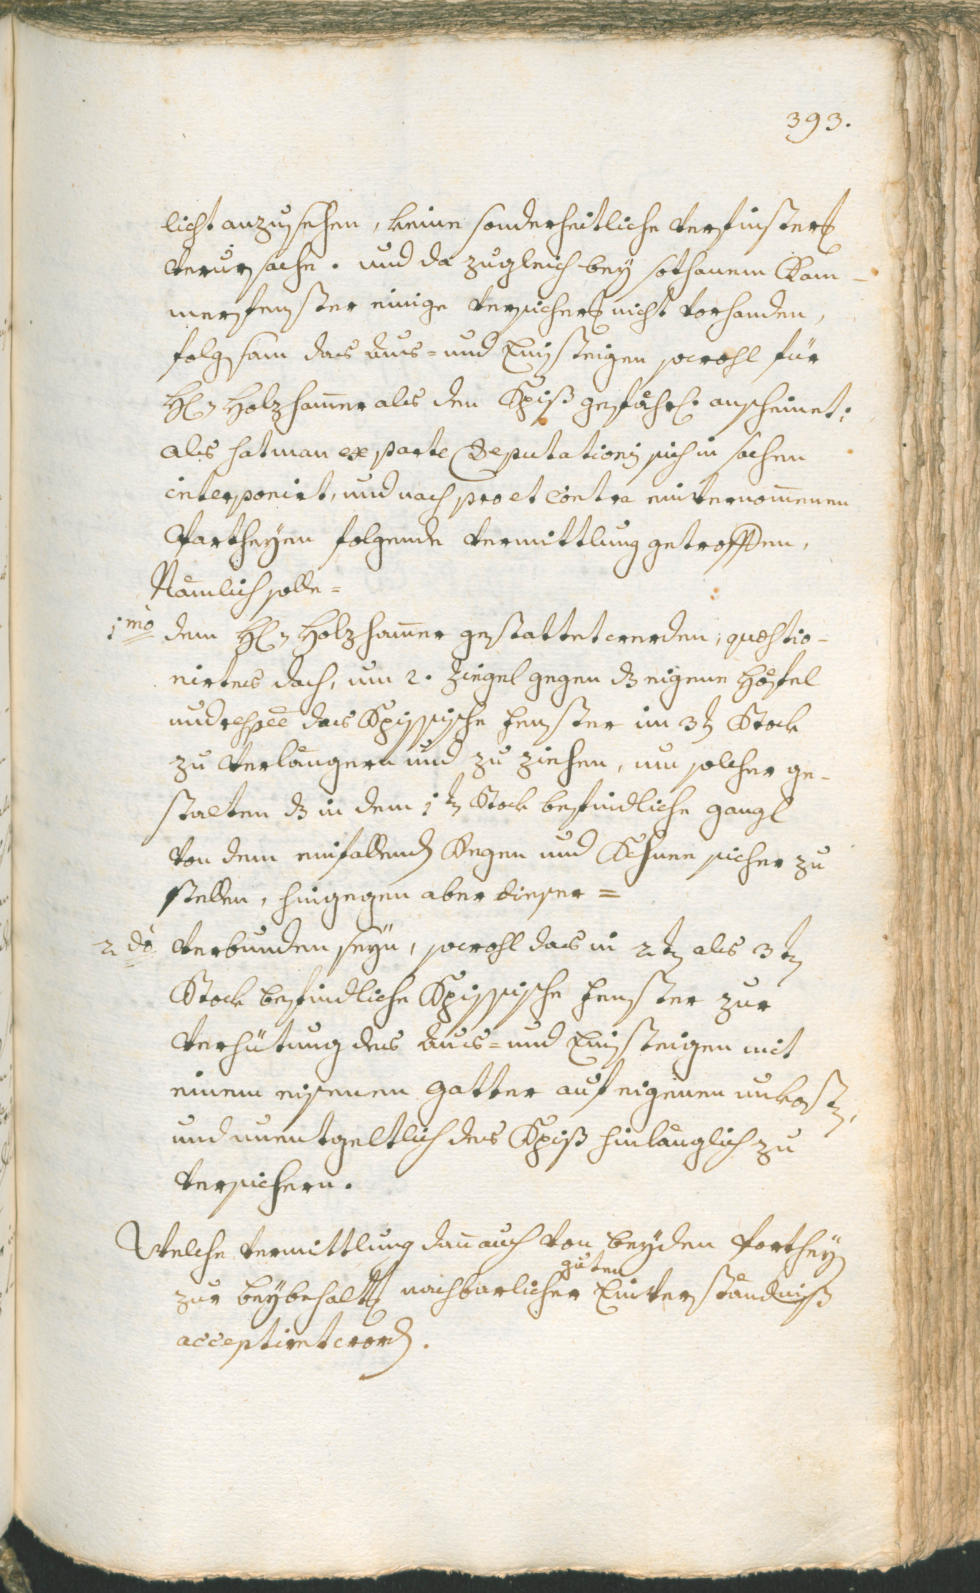 393.
licht anzusehen, keine sonderheitliche Verfinsterg
Verursache. und da zugleich bey sothanem Kam-
merfenster einige Versicherg nicht vorhanden,
folgsam das aus- und Einsteigen sowohl für
H: Holzhamer als den Spiß gefährl. anscheinet:
als hat man ex parte Deputationis sich in sachen
interponirt, und nach pro et contra einvernommenen
Partheyen folgende Vermittlung getroffen,
Nämlich solle=
1mo dem H: Holzhamer gestattet werden, questio-
nirtes dach, um 2. Ziegel gegen dz eigene Höfel
und respec das Spissische Fenster im 3tn Stock
zu Verlängern und zu ziehen, um solcher ge-
stalten dz in dem 1tn Stock befindliche gangl
Von dem einfallend Regen und Schnee sicher zu
stellen, hingegen aber dieser =
2do Verbunden seyn, sowohl das in 2tn als 3tn
Stock befindliche Spissische Fenster zur
Verhütung des aus- und Einsteigen mit
einem eisenen gatter auf eigenen unkostn,
und unentgeltlich des Spiß hinlänglich zu
Versichern.
Welche Vermittlung dan auch Von beyden Parthey
zur beybehaltg nachbarlicher guten Einverständniß
acceptirt word.